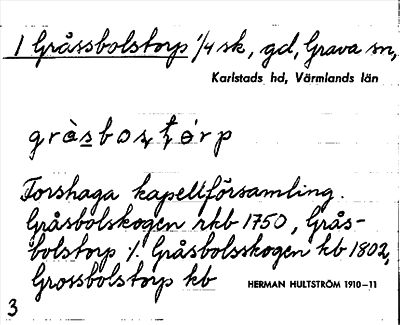 1 Gråssbolstorp 1/4 sk, gd, Grava sn,
Karlstads hd, Värmlands län
gràsbosţórp
Forshaga kapellförsamling.
Gråsbolskogen rkb 1750, Grås-
bolstorp %. Gråsbolsskogen kb 1802,
Grossbolstorp kb
HERMAN HULTSTRÖM 1910–11
3